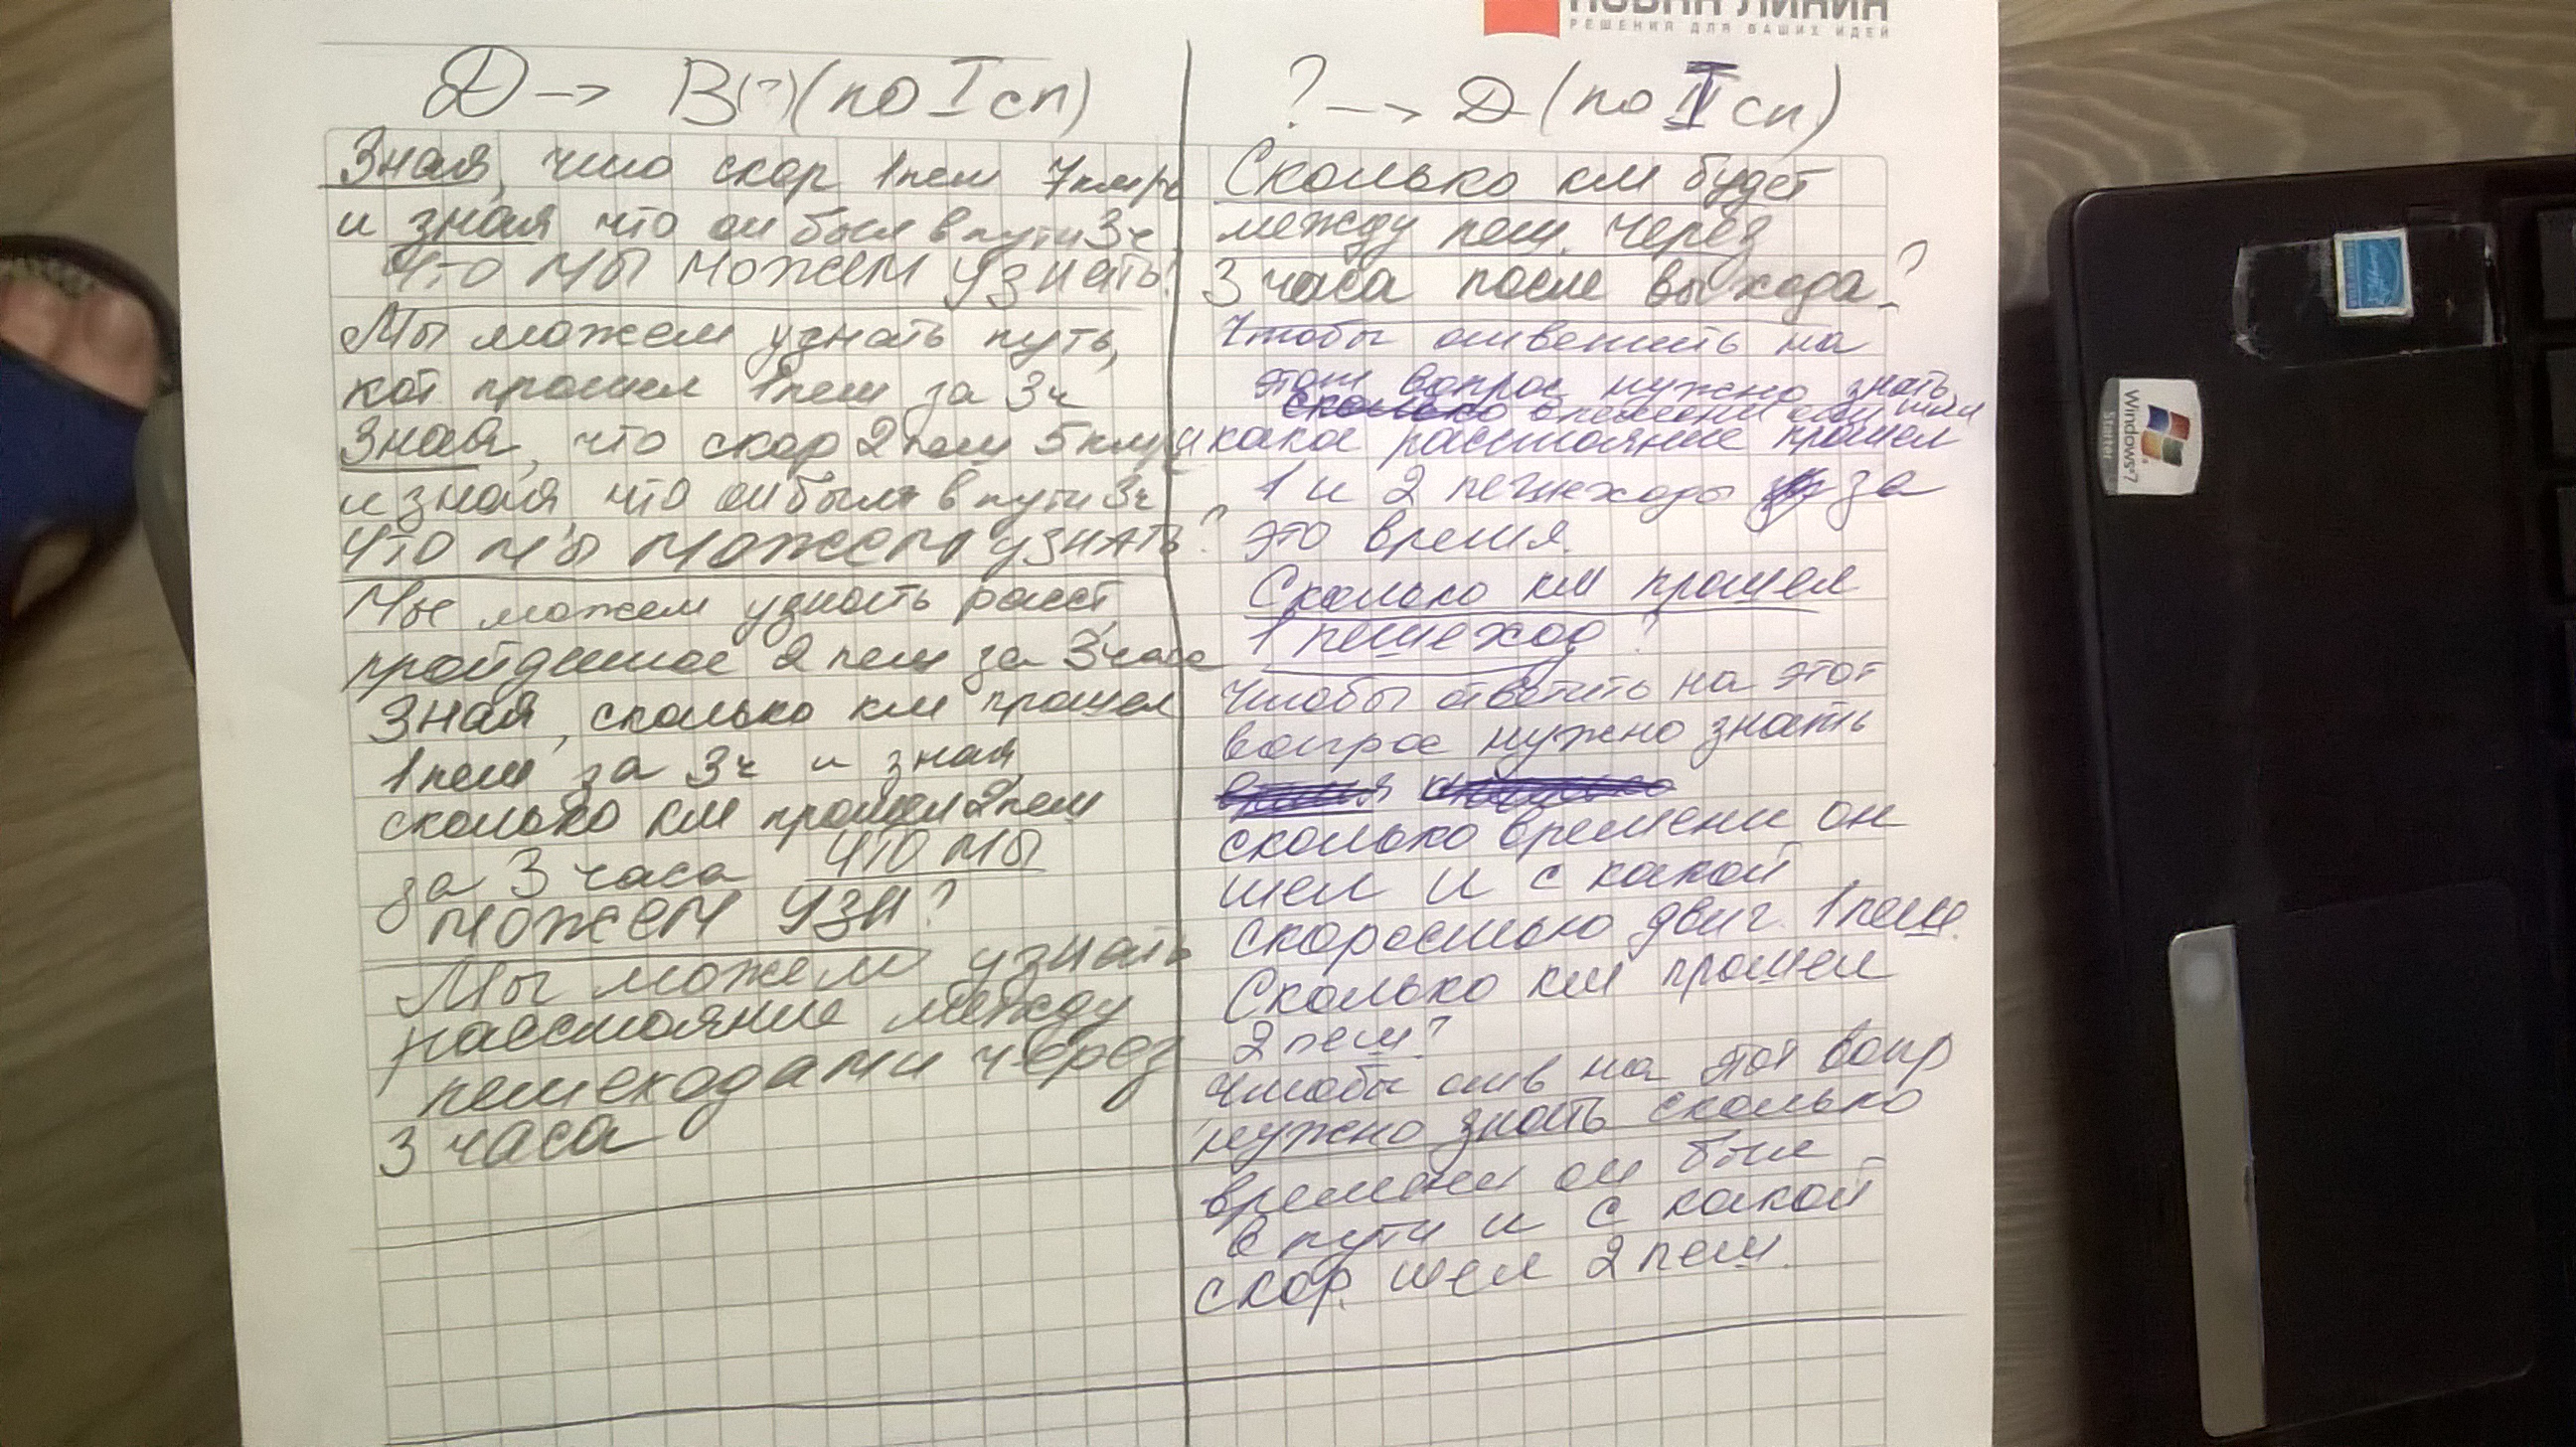 НОВАЯ ЛИНИЯ
РЕШЕНИЯ ДЛЯ ВАШИХ ИДЕЙ
Д → В(?) (по I сп)
Зная, что скор 1 пеш 7 км/ч
и зная что он был в пути 3ч
что мы можем узнать?
Мы можем узнать путь,
кот прошел 1 пеш за 3ч
Зная, что скор 2 пеш 5 км/ч
и зная что он был в пути 3ч
что мы можем узнать?
Мы можем узнать расст,
пройденное 2 пеш за 3 часа
Зная, сколько км прошел
1 пеш за 3ч и зная,
сколько км прошел 2 пеш
за 3 часа что мы
можем узн?
Мы можем узнать
расстояние между
пешеходами через
3 часа
? → Д (по II сп)
Сколько км будет
между пеш. через
3 часа после выхода?
Чтобы ответить на
этот вопрос нужно знать
сколько времени они шли
и какое расстояние прошел
1 и 2 пешеходы за
это время.
Сколько км прошел
1 пешеход?
Чтобы ответить на этот
вопрос нужно знать
сколько времени он
шел и с какой
скоростью двиг. 1 пеш.
Сколько км прошел
2 пеш?
Чтобы отв на этот вопр
нужно знать сколько
времени он был
в пути и с какой
скор. шел 2 пеш.
Windows 7
Starter